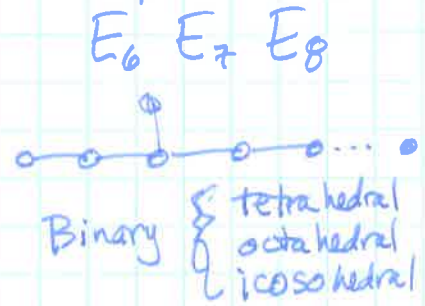 E₆ E₇ E₈
Binary { tetrahedral
octahedral
icosohedral